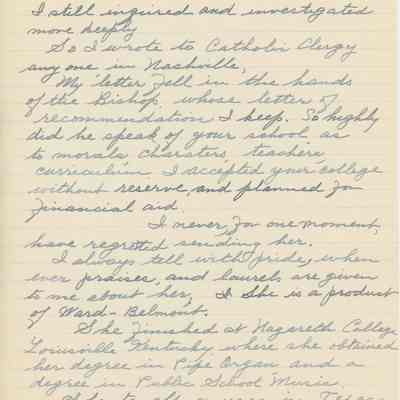 I still inquired and investigated
more deeply
So I wrote to Catholic Clergy
any one in Nashville,
My letter fell in the hands
of the Bishop, whose letter of
recommendation I keep. So highly
did he speak of your school as
to morals, charaters, teachers,
curriculum, I accepted your college
without reserve, and planned for
financial aid.
I never, for one moment,
have regretted sending her.
I always tell with pride, when
ever praises, and laurels, are given
to me about her, She is a product
of Ward-Belmont.
She finished at Nazareth College
Louisville Kentucky where she obtained
her degree in Pipe Organ and a
degree in Public School Music.